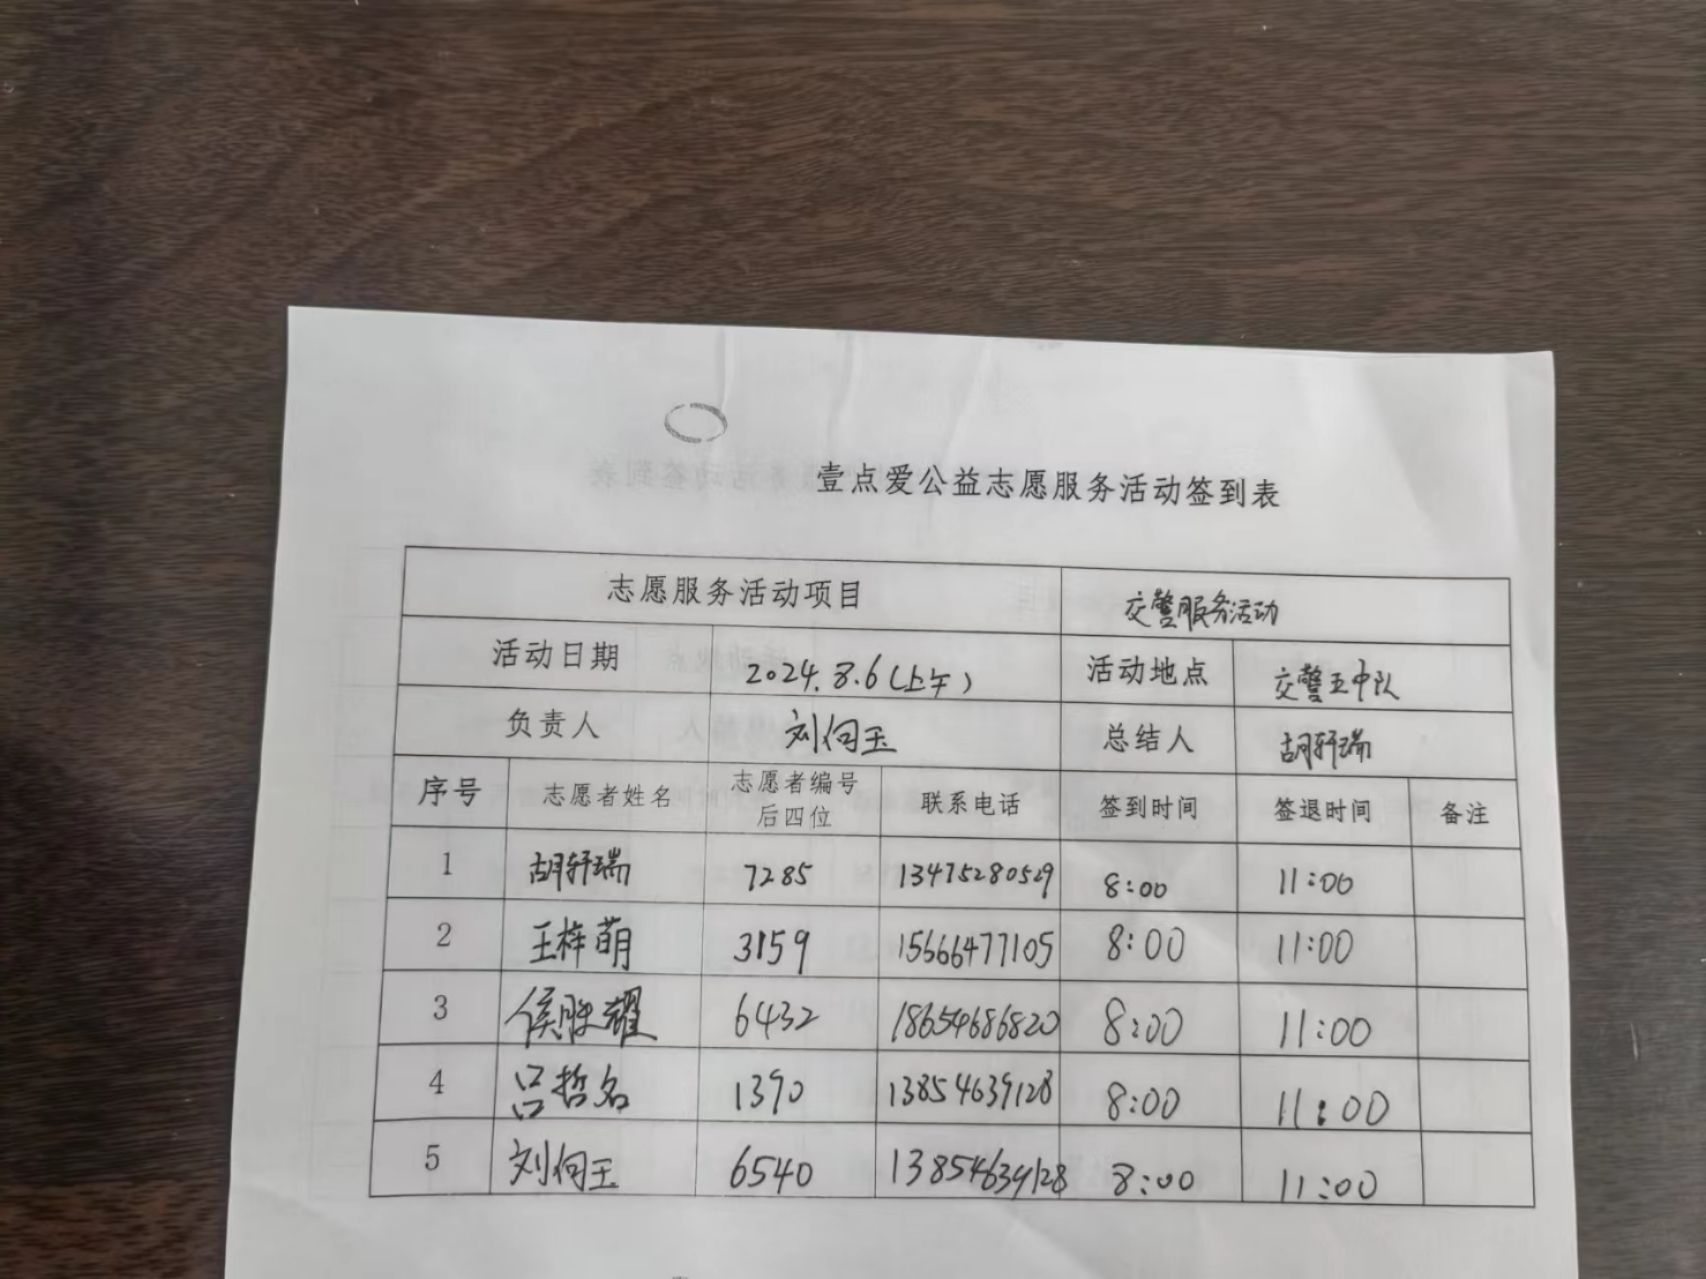 壹点爱公益志愿服务活动签到表
志愿服务活动项目 交警服务活动
活动日期 2024.8.6(上午) 活动地点 交警五中队
负责人 刘向玉 总结人 胡轩瑞
序号 志愿者姓名 志愿者编号后四位 联系电话 签到时间 签退时间 备注
1 胡轩瑞 7285 13475280529 8:00 11:00
2 王梓萌 3159 15666477105 8:00 11:00
3 侯胜耀 6432 18654686820 8:00 11:00
4 吕哲名 1390 13854639128 8:00 11:00
5 刘向玉 6540 13854639128 8:00 11:00